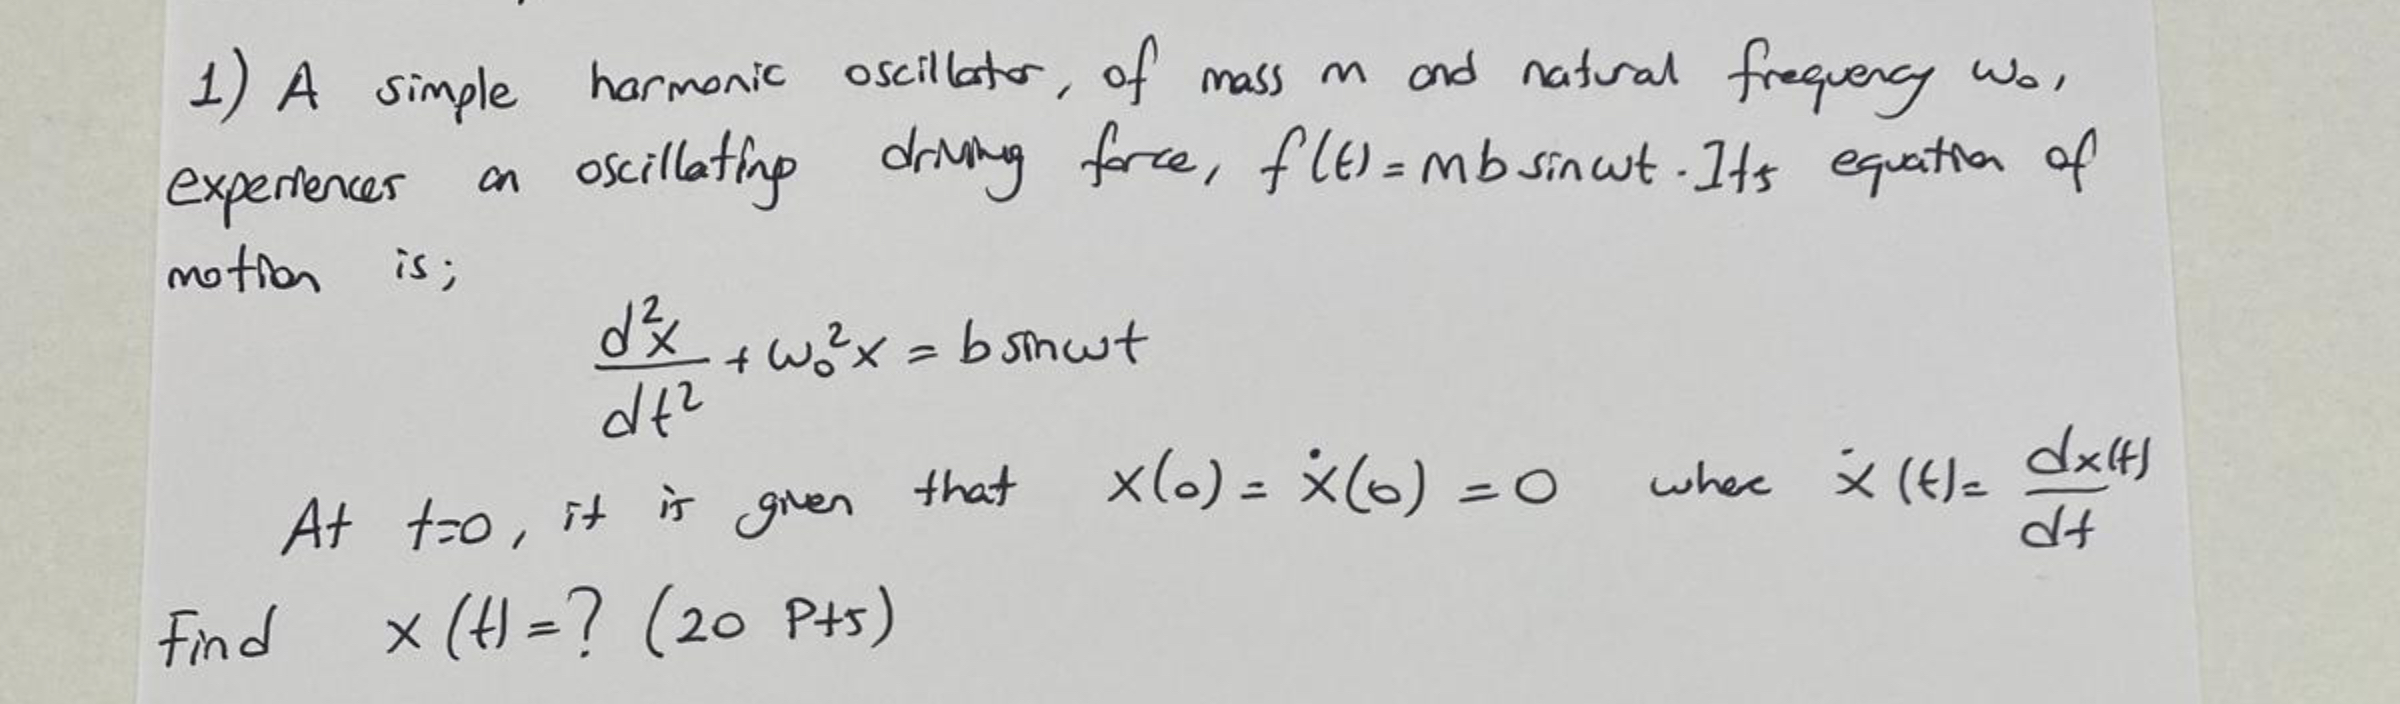 1) A simple harmonic oscillator, of mass m and natural frequency ω₀,
experiences an oscillating driving force, f(t) = mb sin ωt . Its equation of
motion is;
d²x/dt² + ω₀²x = b sin ωt
At t=0, it is given that x(0) = ẋ(0) = 0 where ẋ(t) = dx(t)/dt
Find x(t) = ? (20 Pts)